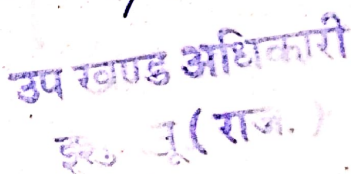 उप खण्ड अधिकारी
(राज.)